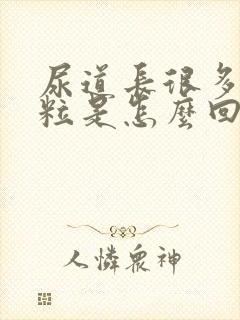 尿道長很多
粒是怎麼回
人憐眾神